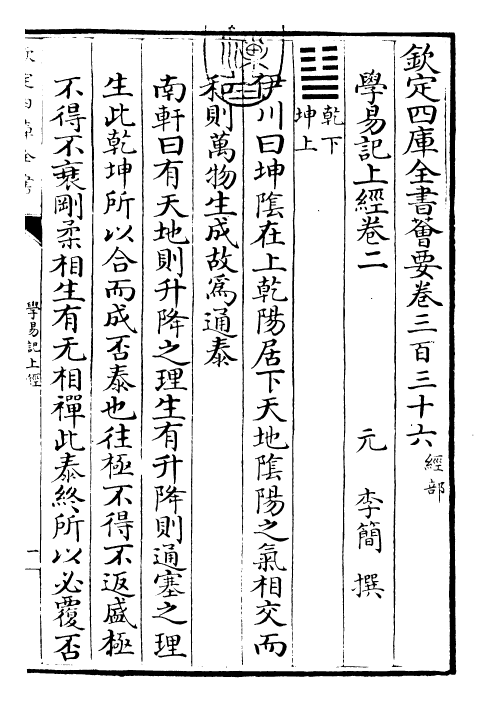 欽定四庫全書薈要卷三百三十六 經部
學易記上經卷二
元 李簡 撰
乾下
坤上
伊川曰坤隂在上乾陽居下天地隂陽之氣相交而
和則萬物生成故爲通泰
南軒曰有天地則升降之理生有升降則通塞之理
生此乾坤所以合而成否泰也往極不得不返盛極
不得不衰剛柔相生有无相禪此泰終所以必覆否
學易記上經
一